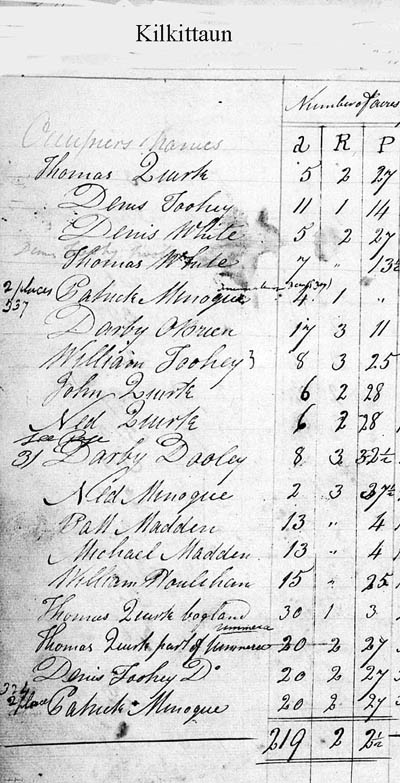 Kilkittaun
Number of acres
Occupiers Names a R P
Thomas Quirk 5 2 27
Denis Toohey 11 1 14
Denis White 5 2 27
Thomas White 7 " 13½
2 places Patrick Minogue 4 1 "
537
Darby OBrien 17 3 11
William Toohey 8 3 25
John Quirk 6 2 28
Ned Quirk 6 2 28
See Page
31 Darby Dooley 8 3 32½
Ned Minogue 2 3 37½
Patt Madden 13 " 4
Michael Madden 13 " 4
William Houlehan 15 " 25
Thomas Quirk bogland 30 1 3
Thomas Quirk part of 20 2 27
Denis Toohey Do 20 2 27
Patrick Minogue 20 2 27
219 2 2½